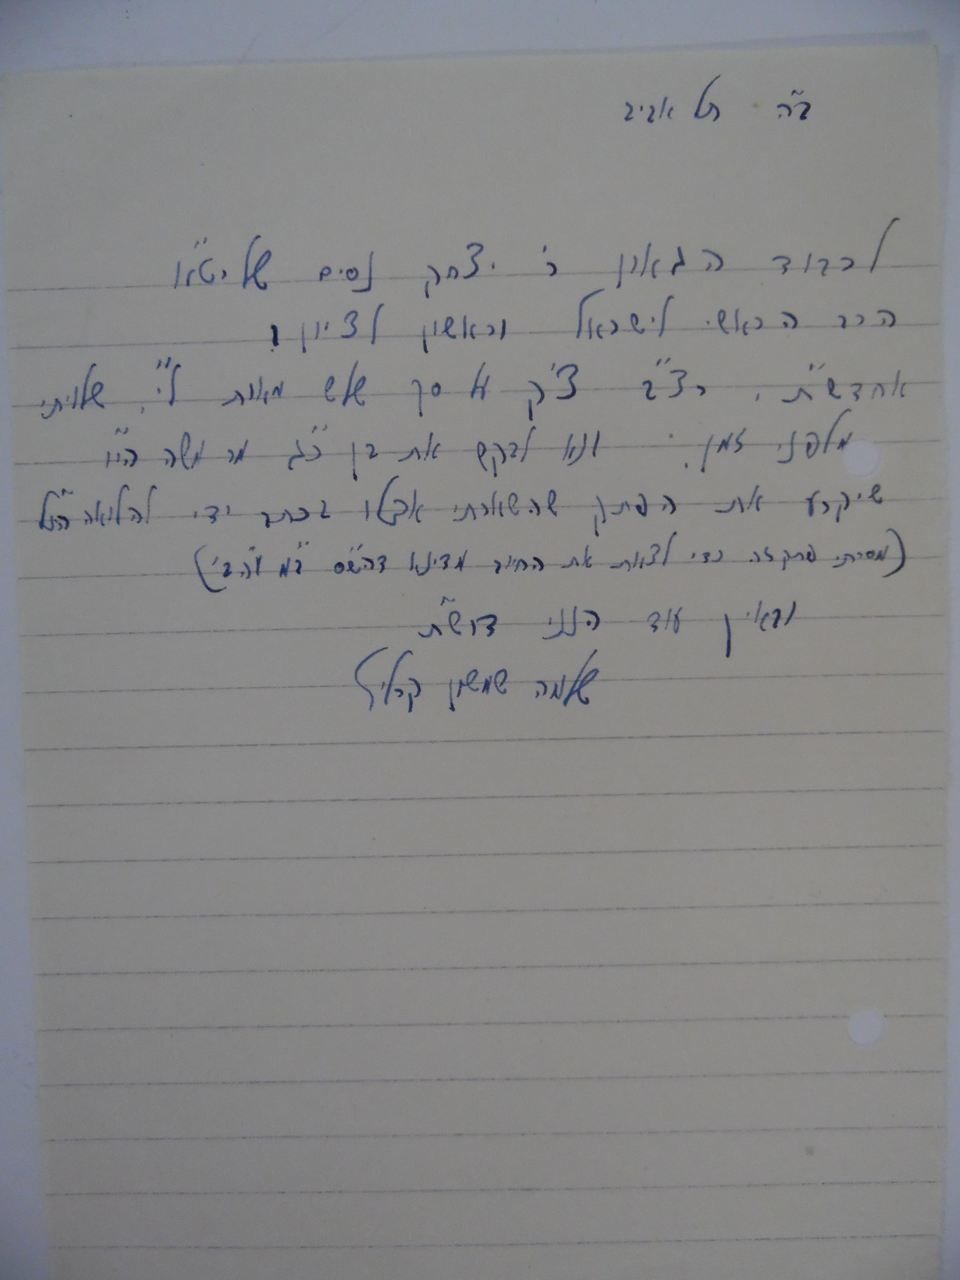 ב"ה תל אביב
לכבוד הגאון ר' יצחק נסים שליט"א
הרב הראשי לישראל וראשון לציון
אחדש"ת, רצ"ב צ'ק ע"ס סך שלש מאות ל"י, שלויתי
מלפני זמן. ונא לבקש את בן כ"ג מר משה הי"ו
שיקרע את הפתק שהשארתי אצלו בכתב ידי להלואה הנ"ל
(מסרתי פתק זה כדי לצאת את החיוב מדינא דהש"ס ב"מ ע"ה ב')
ובאין עוד הנני דוש"ת
שלמה שמשון קרליץ